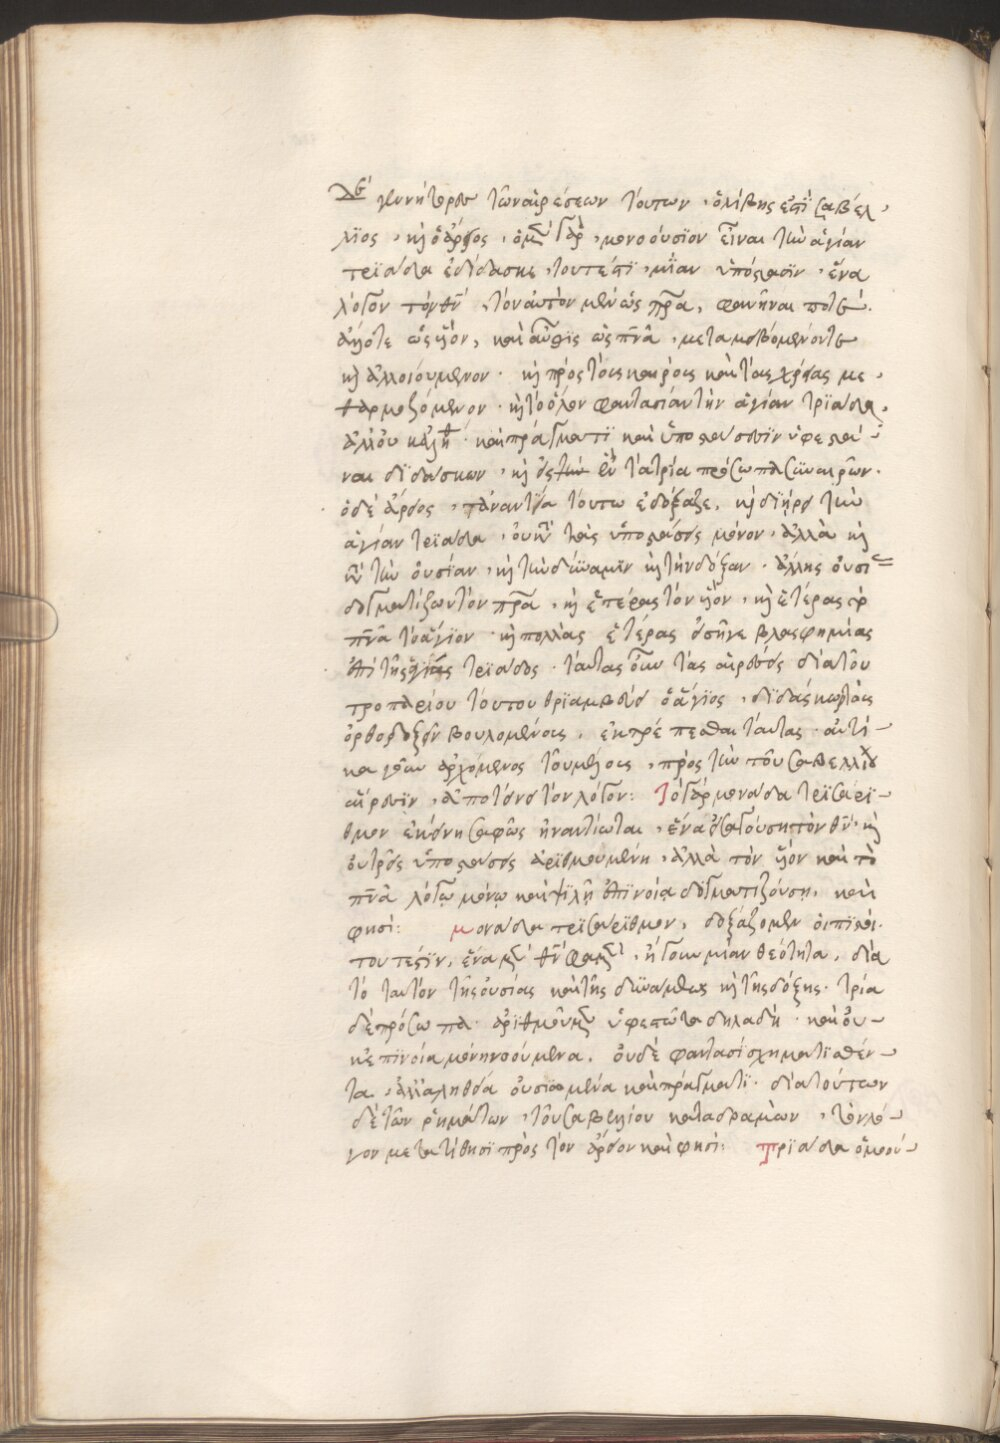 δὲ γεννήτορες τῶν αἱρέσεων τούτων, ὁ λίβης ἐστὶ σαβέλ,
λιος, κὴ ὁ ἄρειος, ὁ μὲν γὰρ, μονοούσϊον εἶναι τὴν ἁγίαν
τρϊάδα ἐδίδασκε, τουτέστϊ, μΐαν ὑπόστασϊν, ἕνα
λόγον τὸν θν̅, τὸν αὐτὸν μὲν ὡς πρ̅α, φανῆναι ποτὲ.
ἄλλοτε ὡς υἱὸν, καὶ αὖθϊς ὡς πν̅α, μεταμειβόμενόν τε
κὴ ἀλλοιούμενον. κὴ πρὸς τοὺς καιροὺς καὶ τὰς χρείας με,
θαρμοζόμενον. κὴ τὸ ὅλον φαντασίαν τὴν ἁγίαν τρϊάδα,
καὶ πράγματϊ καὶ ὑποστάσεϊν ὑφεστά-
ναι δϊδάσκων, κὴ εἰς ἓν τὰ τρία πρόσωπα συναιρῶν.
ὁ δὲ ἄρειος, τἀναντία τούτω ἐδόξαζε, κὴ δϊῄρει τὴν
ἁγίαν τρϊάδα, οὐ κατὰ τὰς ὑποστάσεις μόνον, ἀλλὰ κὴ
κατὰ τὴν οὐσίαν, κὴ τὴν δύναμϊν κὴ τὴν δόξαν. ἄλλης οὐσί=
δογματίζων τὸν πρ̅α, κὴ ἑτέρας τὸν υἱὸν, κὴ ἑτέρας
πν̅α τὸ ἅγϊον. κὴ πολλὰς ἑτέρας εἰσῆγε βλασφημίας
ἐπὶ τῆς ἁγίας τρϊάδος. ταύτας οὖν τὰς αἱρέσεις διὰ τοῦ
τροπαρίου τούτου θρϊαμβεύει ὁ ἅγϊος, δϊδάσκων τοὺς
ὀρθοδοξεῖν βουλομένους, ἐκτρέπεσθαι ταύτας. αὐτί-
κα γοῦν ἀρχόμενος τοῦ μέλους, πρὸς τὴν τοῦ σαβελλίου
αἵρεσϊν, ἀποτείνει τὸν λόγον: Τὸ γὰρ μονάδα τρϊσαρϊ-
θμον ἐκείνη σαφῶς ἠναντίωται, ἕνα εἰσαγούση τὸν θν̅, κὴ
οὐ τρεῖς ὑποστάσεις ἀρϊθμουμένη, ἀλλὰ τὸν υἱὸν καὶ τὸ
πν̅α λόγῳ μόνῳ καὶ ψϊλῇ ἐπϊνοίᾳ δογματϊζούσῃ. καὶ
φησί: Μονάδα τρϊσαρϊθμον, δοξάζομεν οἱ πϊστοί.
τουτέστϊν, ἕνα μὲν θν̅ φαμὲν, ἤγουν μίαν θεότητα, διὰ
τὸ ταυτὸν τῆς οὐσίας καὶ τῆς δυνάμεως κὴ τῆς δόξης. τρία
δὲ πρόσωπα ἀρϊθμοῦμεν ὑφεστῶτα δηλαδὴ. καὶ οὐ-
κ ἐπϊνοία μόνη νοούμενα. οὐδὲ φαντασία σχηματϊσθέν-
τα, ἀλλ' ἀληθεία οὐσϊωμένα καὶ πράγματϊ. διὰ τούτων
δὲ τῶν ῥημάτων, τοῦ σαβελλίου καταδραμὼν, τὸν λό-
γον μετατίθησϊ πρὸς τὸν ἄρειον καὶ φησί: Τρϊάδα ὁμοού-